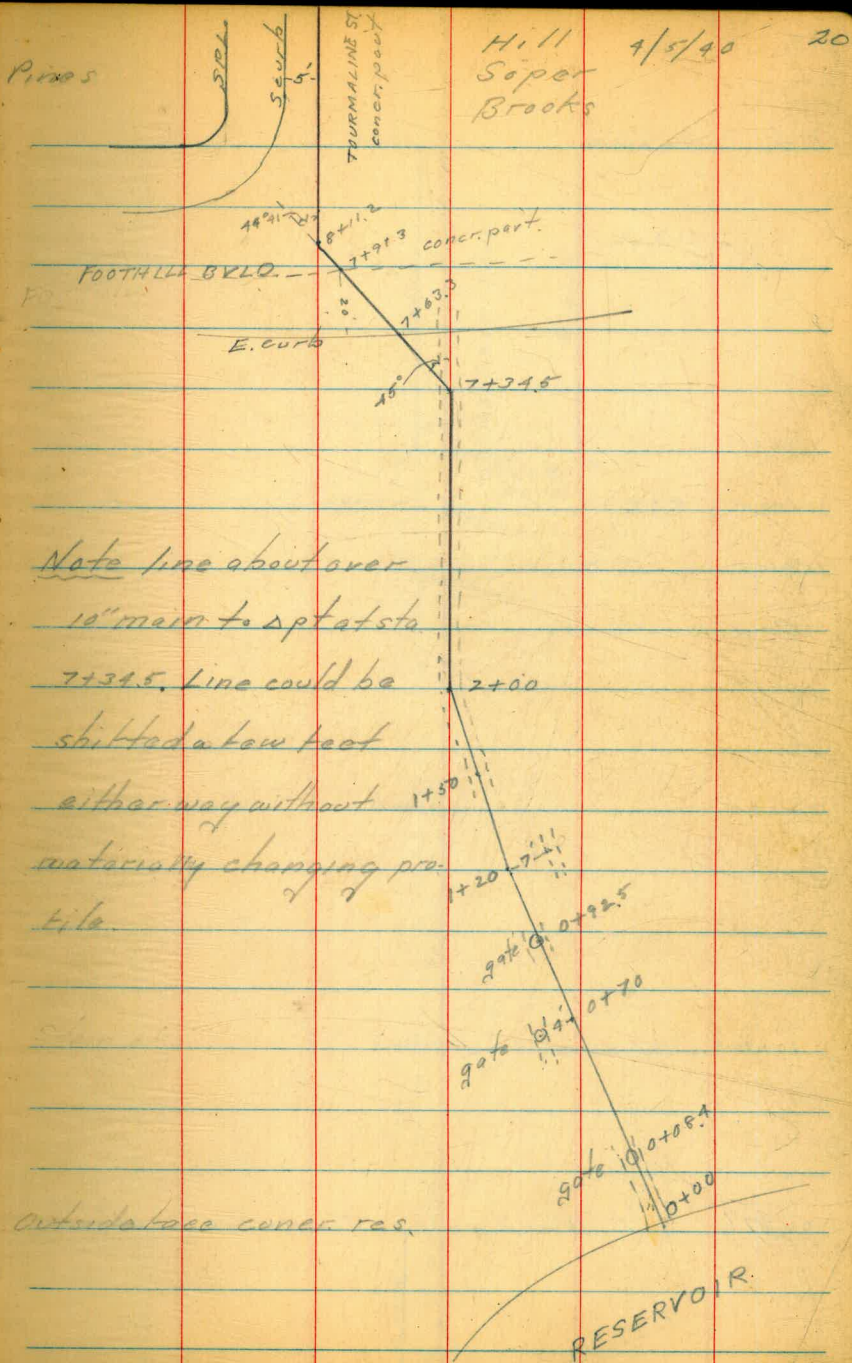 Hill 4/5/40 20
Soper
Brooks
SPL
S curb
5'
TOURMALINE ST
concr. pavt
8+11.2
7+91.3
concr. pavt.
FOOTHILL BVLD
20
7+63.3
E. curb
45°
7+34.5
Note line about over
10" main to Δ pt at sta
7+34.5. Line could be
shifted a few feet
either way without
materially changing pro-
file.
2+00
1+50
1+20
7
gate 0+92.5
gate 4 0+70
gate 0+08.4
0+00
Outside face concr. res.
RESERVOIR